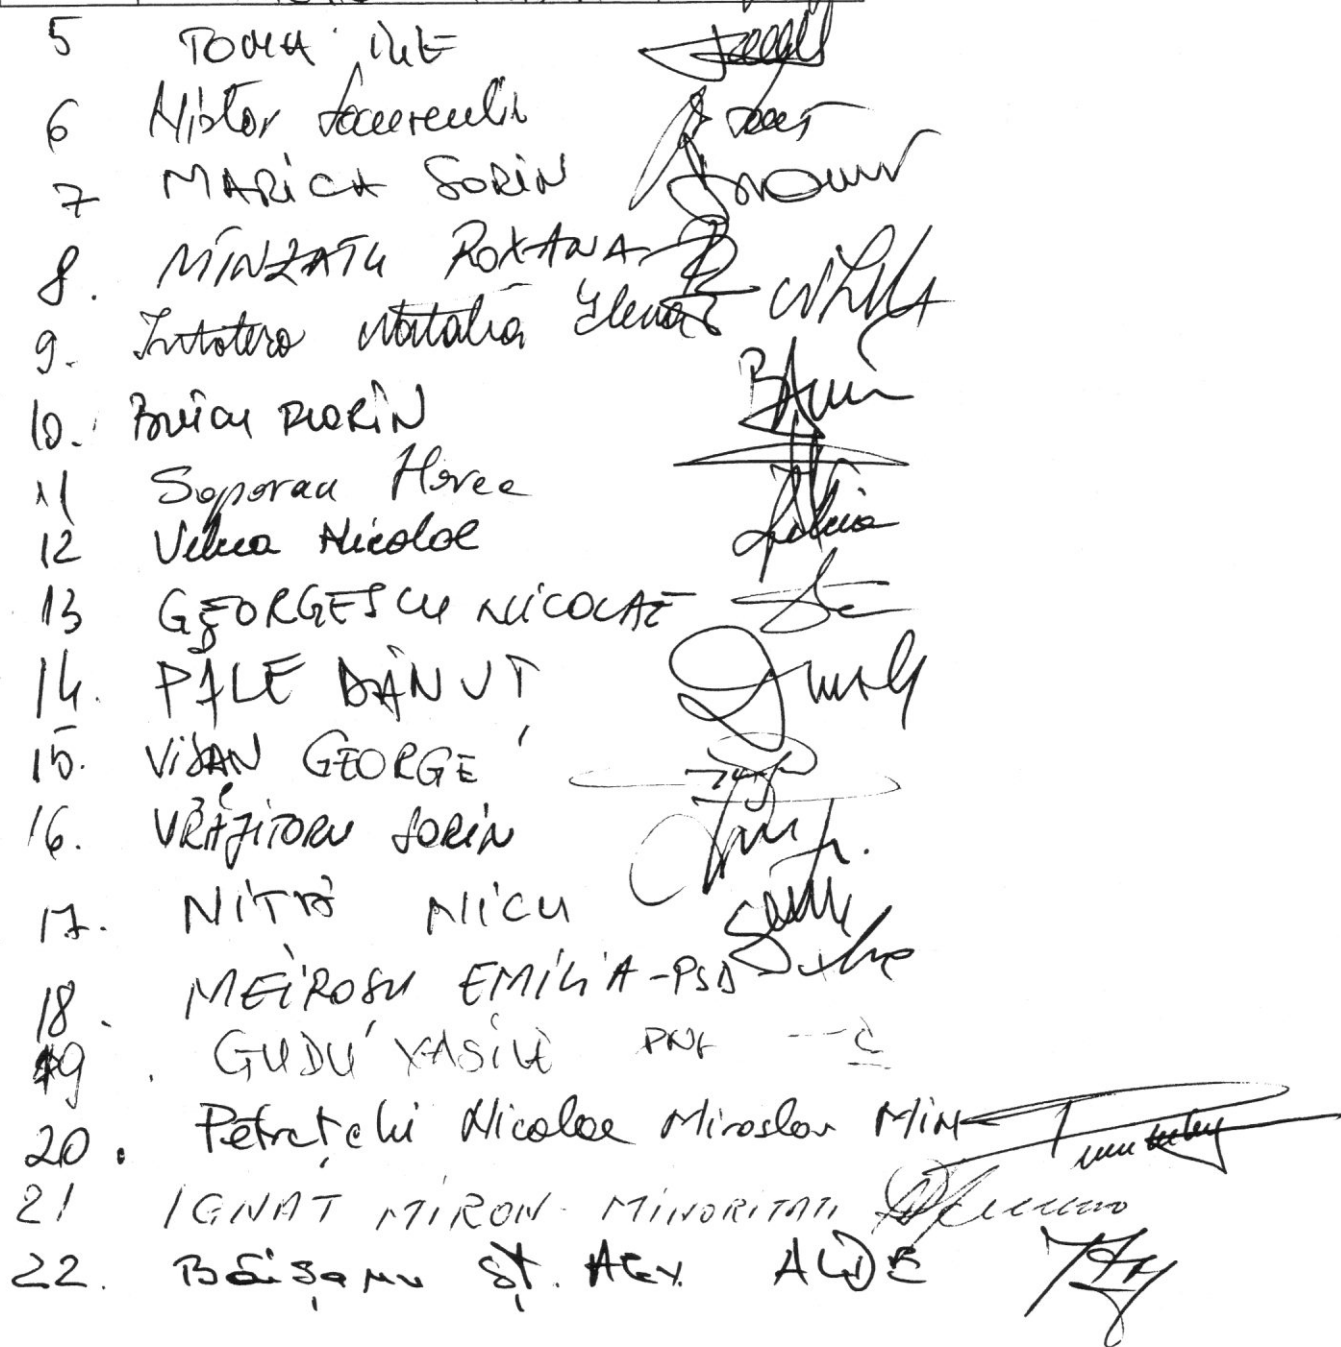 5 TOMA ILIE
6 Nistor Laurentiu
7 MARICA SORIN
8. MÎNZATU ROXANA
9. Intotero Natalia Elena
10. Buicu FLORIN
11 Soporan Horea
12 Velcea Nicolae
13 GEORGESCU NICOLAE
14. PĂLE DĂNUȚ
15. VIȘAN GEORGE
16. VRĂJITORU SORIN
17. NIȚĂ NICU
18. MEIROSU EMILIA-PSD
19. GUDU VASILE PNL
20. Petrețchi Nicolae Miroslav MIN
21 IGNAT MIRON - MINORITATI
22. Băișanu ȘT. Alex. ALDE